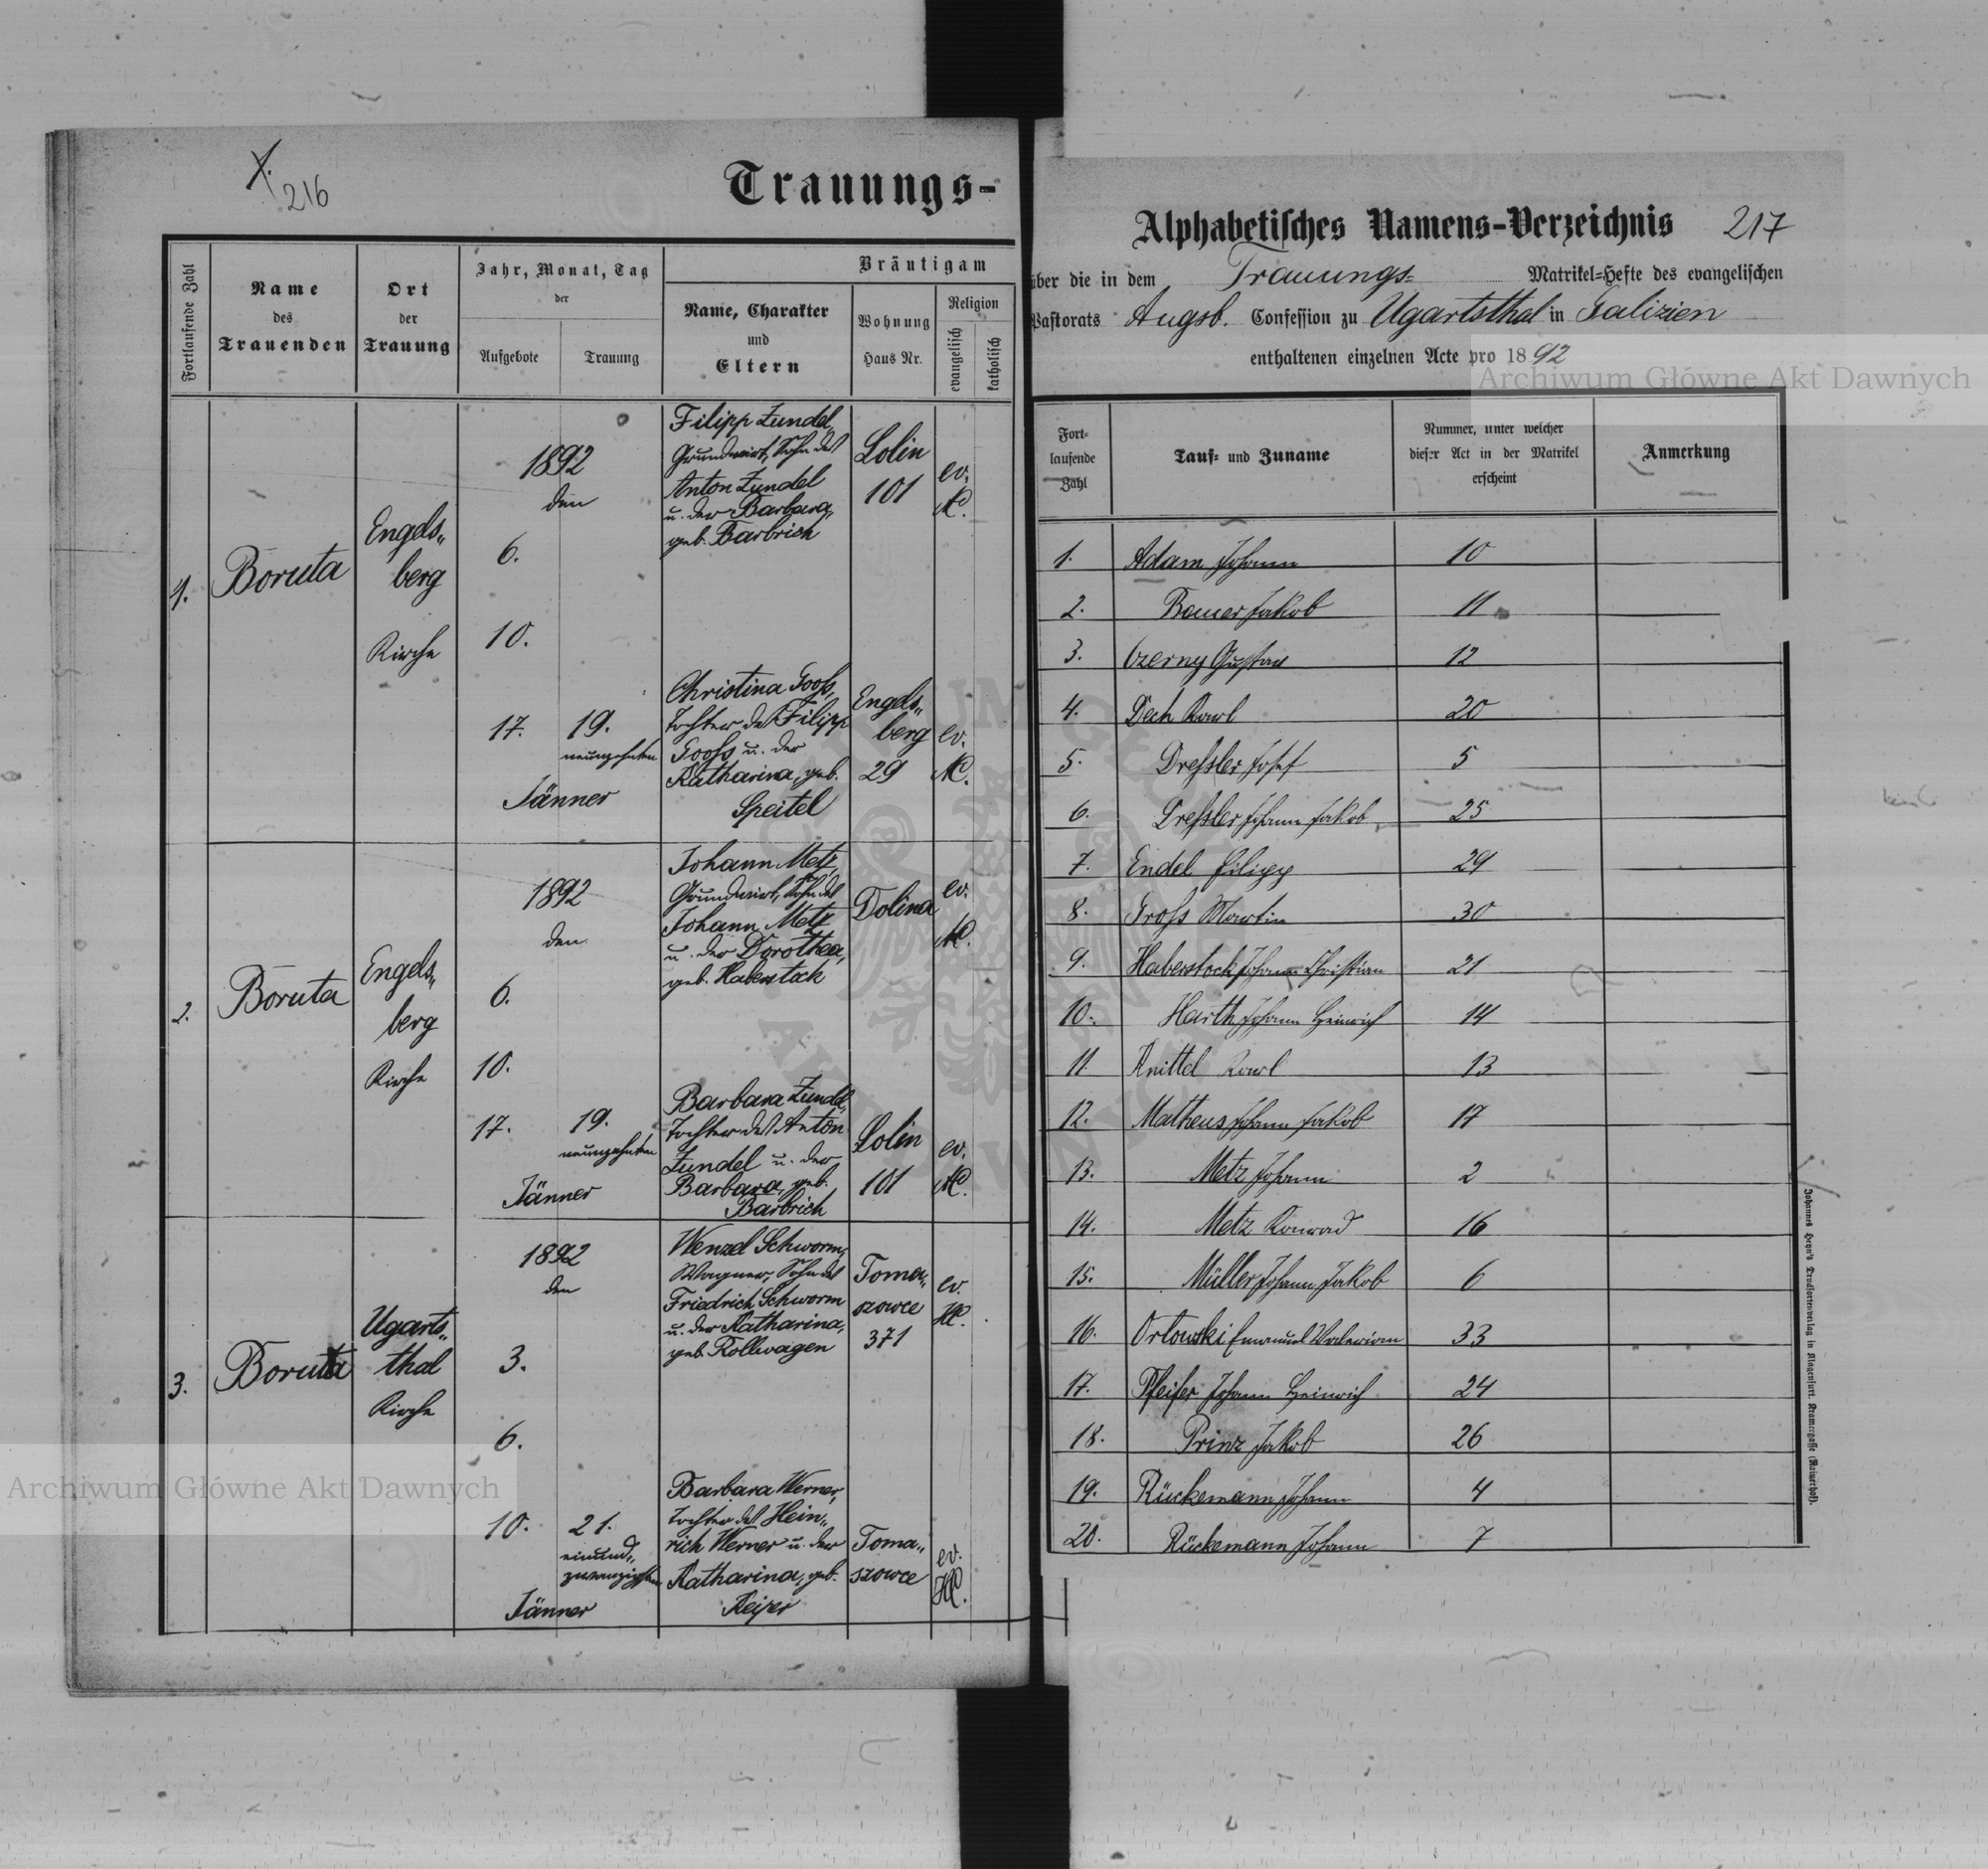 X.
216
Trauungs-
Fortlaufende Zahl
Name
des
Trauenden
Ort
der
Trauung
Jahr, Monat, Tag
der
Aufgebote
Trauung
Bräutigam
Name, Charakter
und
Eltern
Wohnung
Haus Nr.
Religion
evangelisch
katholisch
1.
Boruta
Engels„
berg
Kirche
1892
den
6.
10.
17. 19.
neunzehnten
Jänner
Filipp Zundel,
Grundwirt, Sohn des
Anton Zundel
u. der Barbara,
geb. Barbrich
Lolin
101
ev.
AC.
Christina Gooß,
Tochter des Filipp
Gooß u. der
Katharina, geb.
Speitel
Engels„
berg
29
ev.
AC.
2.
Boruta
Engels„
berg
Kirche
1892
den
6.
10.
17. 19.
neunzehnten
Jänner
Johann Metz,
Grundwirt, Sohn des
Johann Metz
u. der Dorothea,
geb. Haberstock
Dolina
ev.
AC.
Barbara Zundel,
Tochter des Anton
Zundel u. der
Barbara, geb.
Barbrich
Lolin
101
ev.
AC.
3.
Boruta
Ugarts„
thal
Kirche
1892
den
3.
6.
10. 21.
einund„
zwanzigsten
Jänner
Wenzel Schworm,
Wagner, Sohn des
Friedrich Schworm
u. der Katharina,
geb. Rollwagen
Toma„
szowce
371
ev.
HC.
Barbara Werner,
Tochter des Hein„
rich Werner u. der
Katharina, geb.
Keiper
Toma„
szowce
ev.
HC.
Alphabetisches Namens-Verzeichnis 217
über die in dem Trauungs= Matrikel=Hefte des evangelischen
Pastorats Augsb. Confession zu Ugartsthal in Galizien
enthaltenen einzelnen Acte pro 1892
Archiwum Główne Akt Dawnych
Fort=
laufende
Zahl
Tauf= und Zuname
Nummer, unter welcher
dieser Act in der Matrikel
erscheint
Anmerkung
1. Adam Johann 10
2. Bauer Jakob 11
3. Czerny Gustav 12
4. Dech Karl 20
5. Dreßler Josef 5
6. Dreßler Johann Jakob 25
7. Endel Filipp 29
8. Groß Martin 30
9. Haberstock Johann Christian 21
10. Harth Johann Heinrich 14
11. Knittel Karl 13
12. Matheus Johann Jakob 17
13. Metz Johann 2
14. Metz Konrad 16
15. Müller Johann Jakob 6
16. Orłowski Emanuel Valerian 33
17. Pfeifer Johann Heinrich 24
18. Prinz Jakob 26
19. Rückemann Johann 4
20. Rückemann Johann 7
Johannes Heyn's Drucksortenverlag in Klagenfurt. Kramergasse (Rainerhof).
Archiwum Główne Akt Dawnych